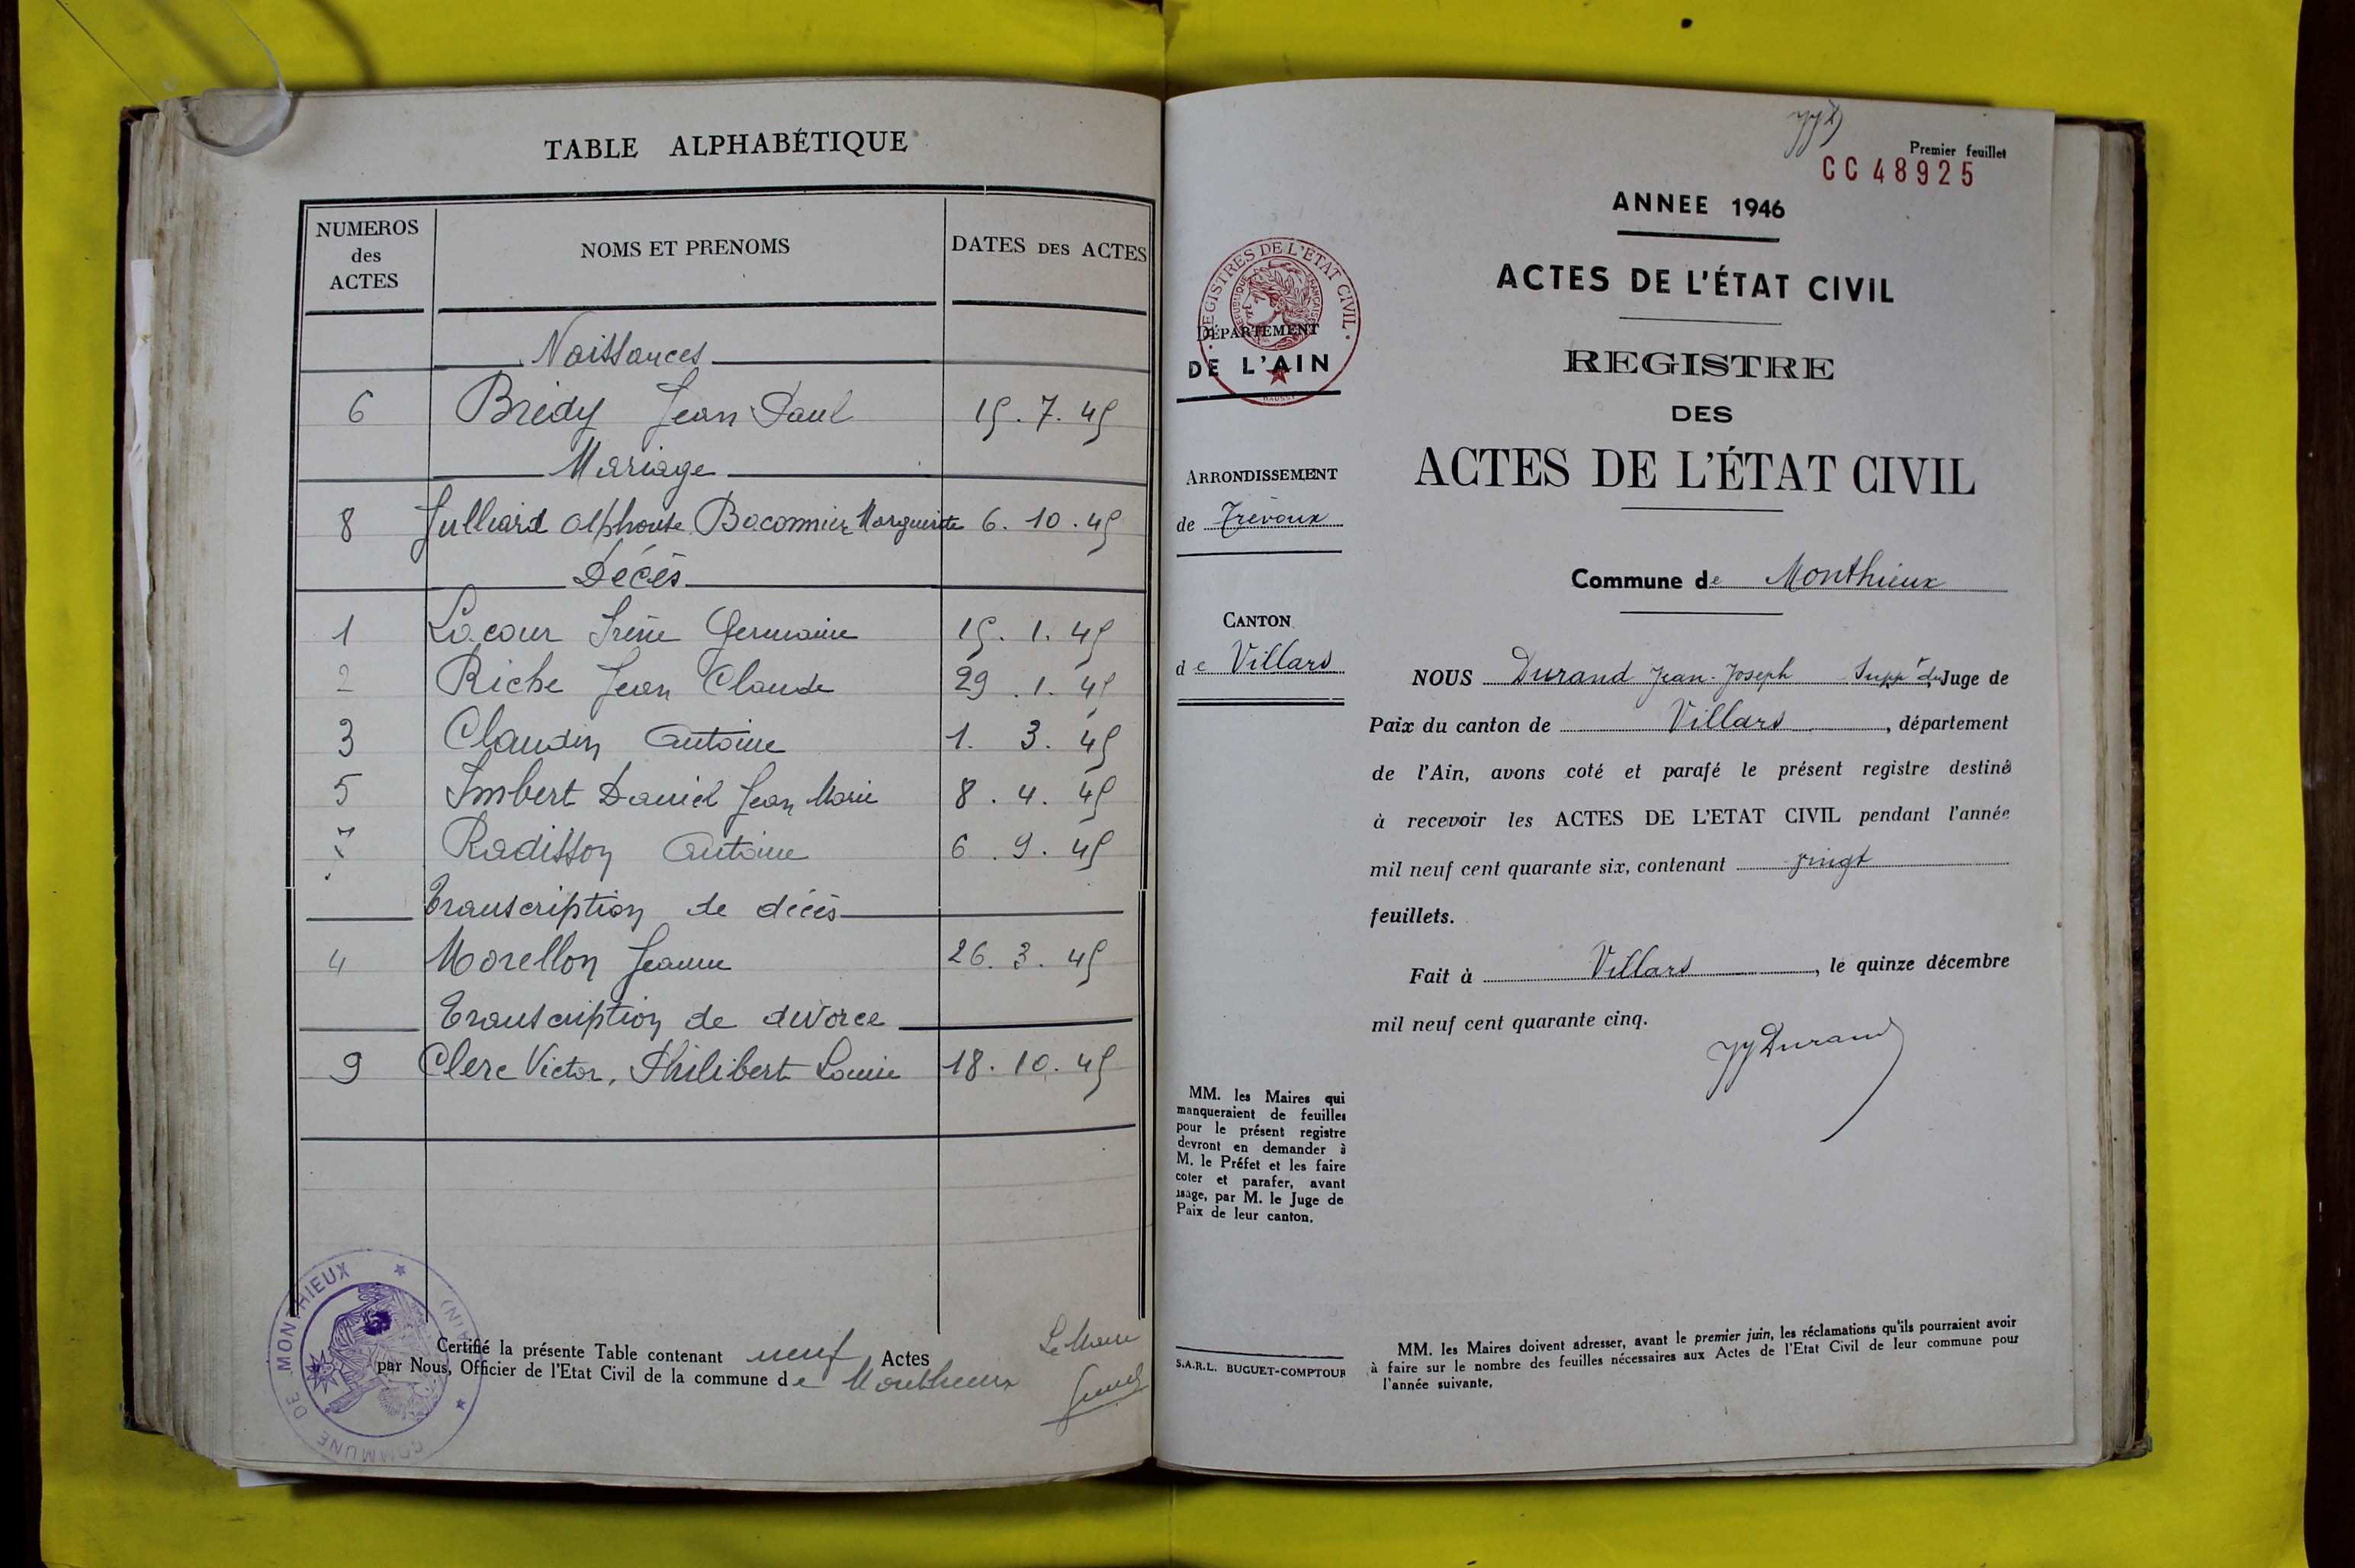 TABLE ALPHABÉTIQUE
NUMEROS des ACTES
NOMS ET PRENOMS
DATES DES ACTES
Naissances
6 Brédy Jean Paul 15.7.45
Mariage
8 Julliard Alphonse Baconnier Marguerite 6.10.45
Décès
1 Lacour Irène Germaine 15.1.45
2 Riche Jean Claude 29.1.45
3 Claudin Antoine 1.3.45
5 Imbert Daniel Jean Marie 8.4.45
7 Radisson Antoine 6.9.45
Transcription de décès
4 Morellon Jeanne 26.3.45
Transcription de divorce
9 Clerc Victor, Philibert Louis 18.10.45
Certifié la présente Table contenant neuf Actes
par Nous, Officier de l'Etat Civil de la commune de Monthieux
Le Maire
COMMUNE DE MONTHIEUX (AIN)
JJD
Premier feuillet
CC 48925
ANNEE 1946
ACTES DE L'ÉTAT CIVIL
REGISTRE
DES
ACTES DE L'ÉTAT CIVIL
REGISTRES DE L'ETAT CIVIL
REPUBLIQUE FRANCAISE
DÉPARTEMENT
DE L'AIN
ARRONDISSEMENT
de Trévoux
CANTON
de Villars
Commune de Monthieux
NOUS Durand Jean-Joseph Suppt du Juge de
Paix du canton de Villars, département
de l'Ain, avons coté et parafé le présent registre destiné
à recevoir les ACTES DE L'ETAT CIVIL pendant l'année
mil neuf cent quarante six, contenant vingt
feuillets.
Fait à Villars, le quinze décembre
mil neuf cent quarante cinq.
JJ Durand
MM. les Maires qui
manqueraient de feuilles
pour le présent registre
devront en demander à
M. le Préfet et les faire
coter et parafer, avant
usage, par M. le Juge de
Paix de leur canton.
S.A.R.L. BUGUET-COMPTOUR
MM. les Maires doivent adresser, avant le premier juin, les réclamations qu'ils pourraient avoir
à faire sur le nombre des feuilles nécessaires aux Actes de l'Etat Civil de leur commune pour
l'année suivante.